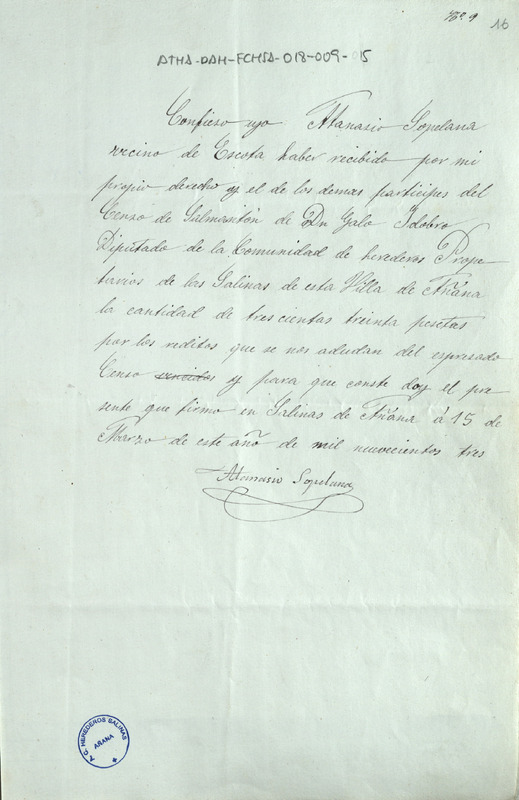 Nº. 9
16
ATHA-DAH-FCHSA-018-009-015
Confieso yo Atanasio Sopelana
vecino de Escota haber recibido por mi
propio derecho y el de los demas participes del
Censo de Salmantón de Dn Galo Ydobro
Diputado de la Comunidad de herederos Propie
tarios de las Salinas de esta Villa de Añána
la cantidad de trescientas treinta pesetas
por los reditos que se nos adeudan del espresado
Censo vencidos y para que conste doy el pre
sente que firmo en Salinas de Añána á 15 de
Marzo de este año de mil nuevecientos tres
Atanasio Sopelana
A. C. HEREDEROS SALINAS
AÑANA